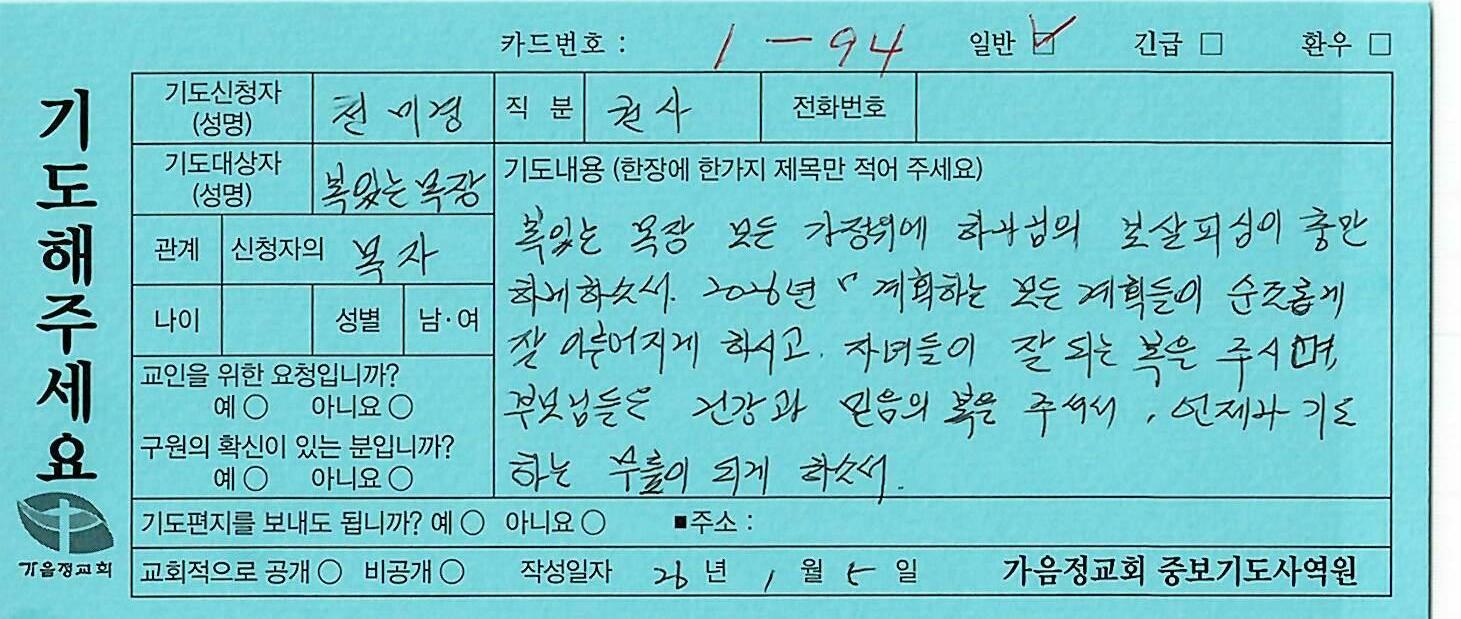 카드번호 : 1 - 94 일반 ☑ 긴급 □ 환우 □
기도해주세요
기도신청자 (성명) 전미경 직 분 권사 전화번호
기도대상자 (성명) 복있는목장
관계 신청자의 목자
나이 성별 남·여
교인을 위한 요청입니까?
예○ 아니요○
구원의 확신이 있는 분입니까?
예○ 아니요○
기도내용 (한장에 한가지 제목만 적어 주세요)
복있는 목장 모든 가정위에 하나님의 보살피심이 충만
하게하소서. 2026년 계획하는 모든 계획들이 순조롭게
잘 이루어지게 하시고. 자녀들이 잘 되는 복은 주시며,
부모님들은 건강과 믿음의 복을 주셔서, 언제나 기도
하는 무릎이 되게 하소서.
기도편지를 보내도 됩니까? 예○ 아니요○ ■주소 :
교회적으로 공개○ 비공개○ 작성일자 26 년 1 월 5 일 가음정교회 중보기도사역원
가음정교회